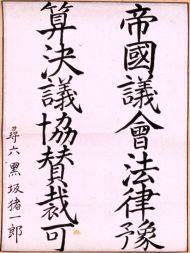 帝國議會法律豫
算決議協賛裁可
尋六黑坂猪一郎